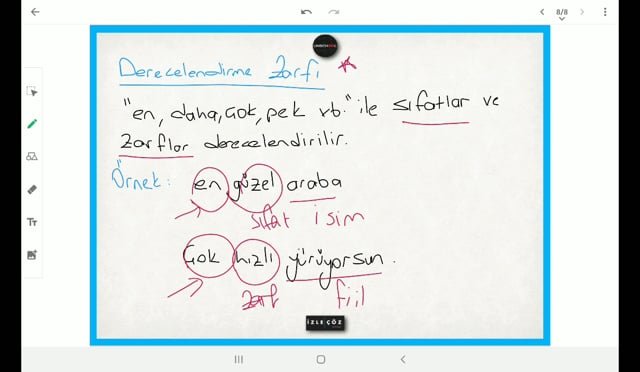 8/8
Derecelendirme Zarfı
"en, daha, çok, pek vb." ile sıfatlar ve
zarflar derecelendirilir.
Örnek: en güzel araba
sıfat isim
Çok hızlı yürüyorsun.
zarf fiil
İZLE ÇÖZ